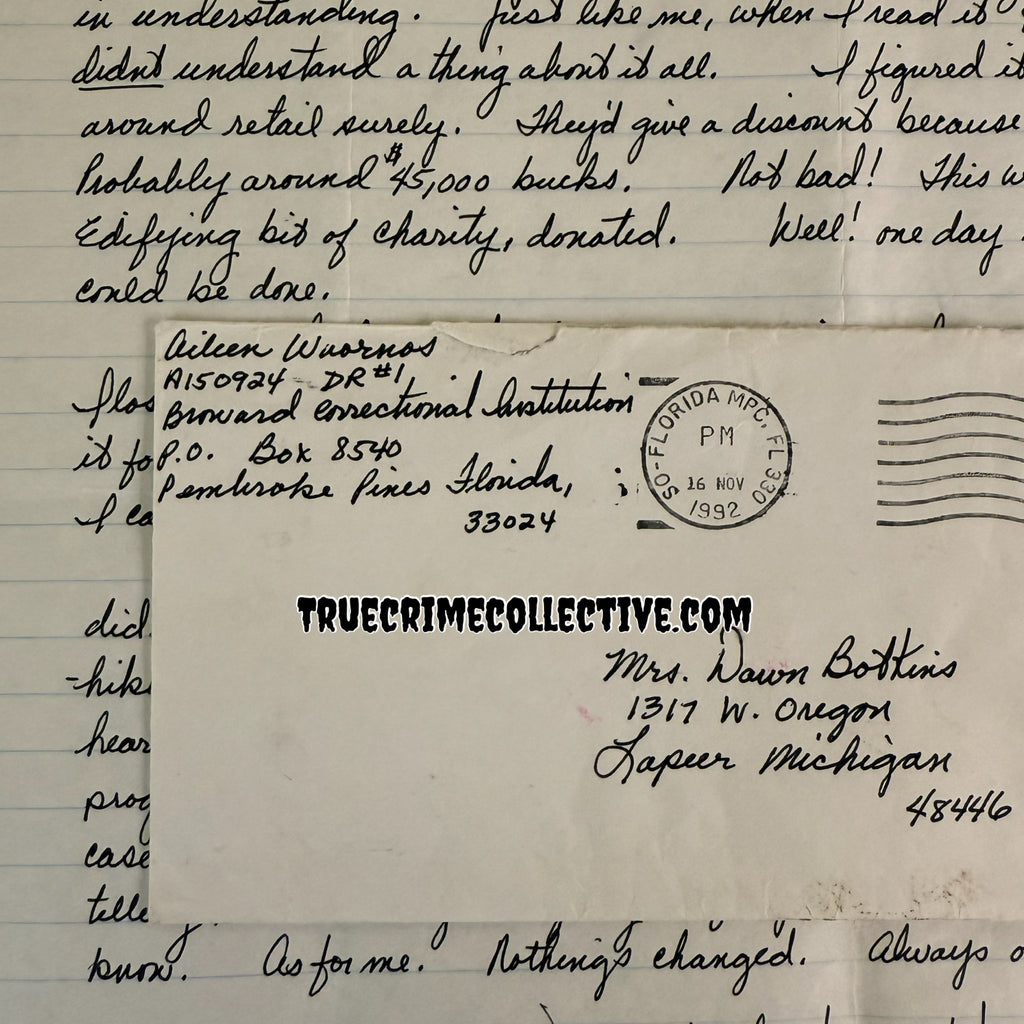 in understanding. Just like me, when I read it
didnt understand a thing about it all. I figured it
around retail surely. They'd give a discount because
Probably around $45,000 bucks. Not bad! This w
Edifying bit of charity, donated. Well! one day
could be done.
Aileen Wuornos
A150924 - DR #1
Broward Correctional Institution
P.O. Box 8540
Pembroke Pines Florida,
33024
SO-FLORIDA MPC, FL 330
PM
16 NOV
1992
TRUECRIMECOLLECTIVE.COM
Mrs. Dawn Botkins
1317 W. Oregon
Lapeer Michigan
48446
it fo
I ca
did
-hik
hear
prog
case
telle
know. As for me. Nothing's changed. Always o